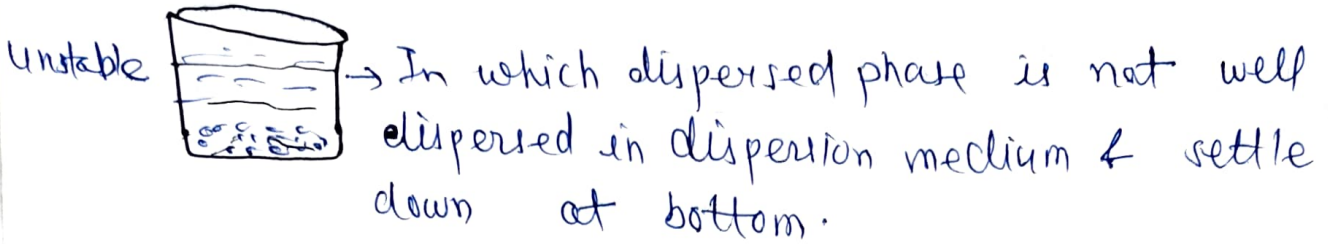 Unstable → In which dispersed phase is not well
dispersed in dispersion medium & settle
down at bottom.